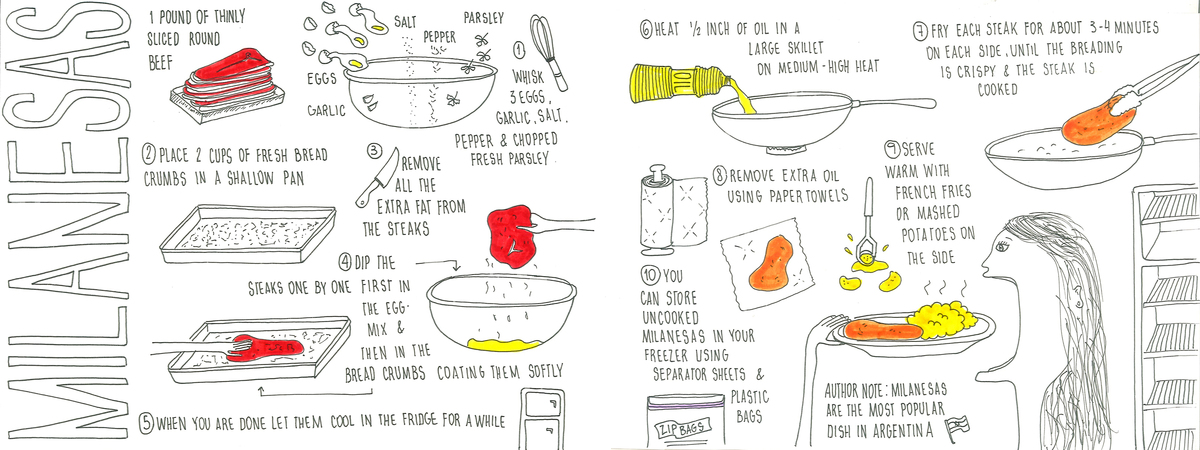 MILANESAS
1 POUND OF THINLY
SLICED ROUND
BEEF
EGGS
GARLIC
SALT
PEPPER
PARSLEY
①
WHISK
3 EGGS,
GARLIC, SALT,
PEPPER & CHOPPED
FRESH PARSLEY.
② PLACE 2 CUPS OF FRESH BREAD
CRUMBS IN A SHALLOW PAN
③
REMOVE
ALL THE
EXTRA FAT FROM
THE STEAKS
④ DIP THE
STEAKS ONE BY ONE FIRST IN
THE EGG-
MIX &
THEN IN THE
BREAD CRUMBS COATING THEM SOFTLY
⑤ WHEN YOU ARE DONE LET THEM COOL IN THE FRIDGE FOR A WHILE
⑥ HEAT ½ INCH OF OIL IN A
LARGE SKILLET
ON MEDIUM-HIGH HEAT
OIL
⑦ FRY EACH STEAK FOR ABOUT 3-4 MINUTES
ON EACH SIDE, UNTIL THE BREADING
IS CRISPY & THE STEAK IS
COOKED
⑧ REMOVE EXTRA OIL
USING PAPER TOWELS
⑨ SERVE
WARM WITH
FRENCH FRIES
OR MASHED
POTATOES ON
THE SIDE
⑩ YOU
CAN STORE
UNCOOKED
MILANESAS IN YOUR
FREEZER USING
SEPARATOR SHEETS &
PLASTIC
BAGS
ZIP BAGS
AUTHOR NOTE: MILANESAS
ARE THE MOST POPULAR
DISH IN ARGENTINA